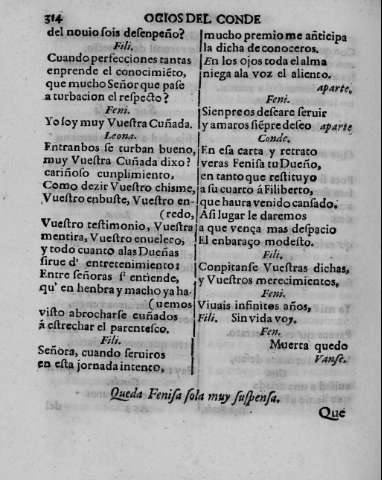 314 OCIOS DEL CONDE
del nouio sois desenpeño?
Fili.
Cuando perfecciones tantas
enprende el conocimiẽto,
que mucho Señor que pase
a turbacion el respecto?
Feni.
Yo soy muy Vuestra Cuñada.
Leona.
Entranbos se turban bueno,
muy Vuestra Cuñada dixo?
cariñoso cunplimiento,
Como dezir Vuestro chisme,
Vuestro enbuste, Vuestro en-
(redo,
Vuestro testimonio, Vuestra
mentira, Vuestro enuelero,
y todo cuanto alas Dueñas
sirue d' entretenimiento:
Entre señoras s' entiende,
qu' en henbra y macho ya ha-
(uemos
visto abrocharse cuñados
á estrechar el parentesco.
Fili.
Señora, cuando seruiros
en esta jornada intento,
mucho premio me añticipa
la dicha de conoceros.
En los ojos toda el alma
niega ala voz el aliento.
aparte.
Feni.
Sienpre os deseare seruir
y amaros siẽpre deseo aparte
Conde.
En esa carta y retrato
veras Fenisa tu Dueño,
en tanto que restituyo
a su cuarto á Filiberto,
que haura venido cansado.
Asi lugar le daremos
a que vença mas despacio
El enbaraço modesto.
Fili.
Conpitanse Vuestras dichas,
y Vuestros merecimientos,
Feni.
Viuais infinitos años,
Fili. Sin vida voy.
Fen.
Muerta quedo
Vanse.
Queda Fenisa sola muy suspensa.
Que